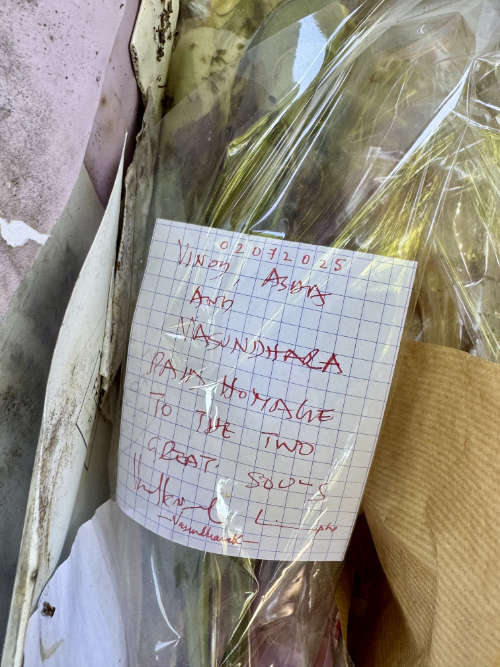 02072025
VINOD, ASHA
AND
VASUNDHARA
PAID HOMAGE
TO THE TWO
GREAT SOULS
Vasundhara